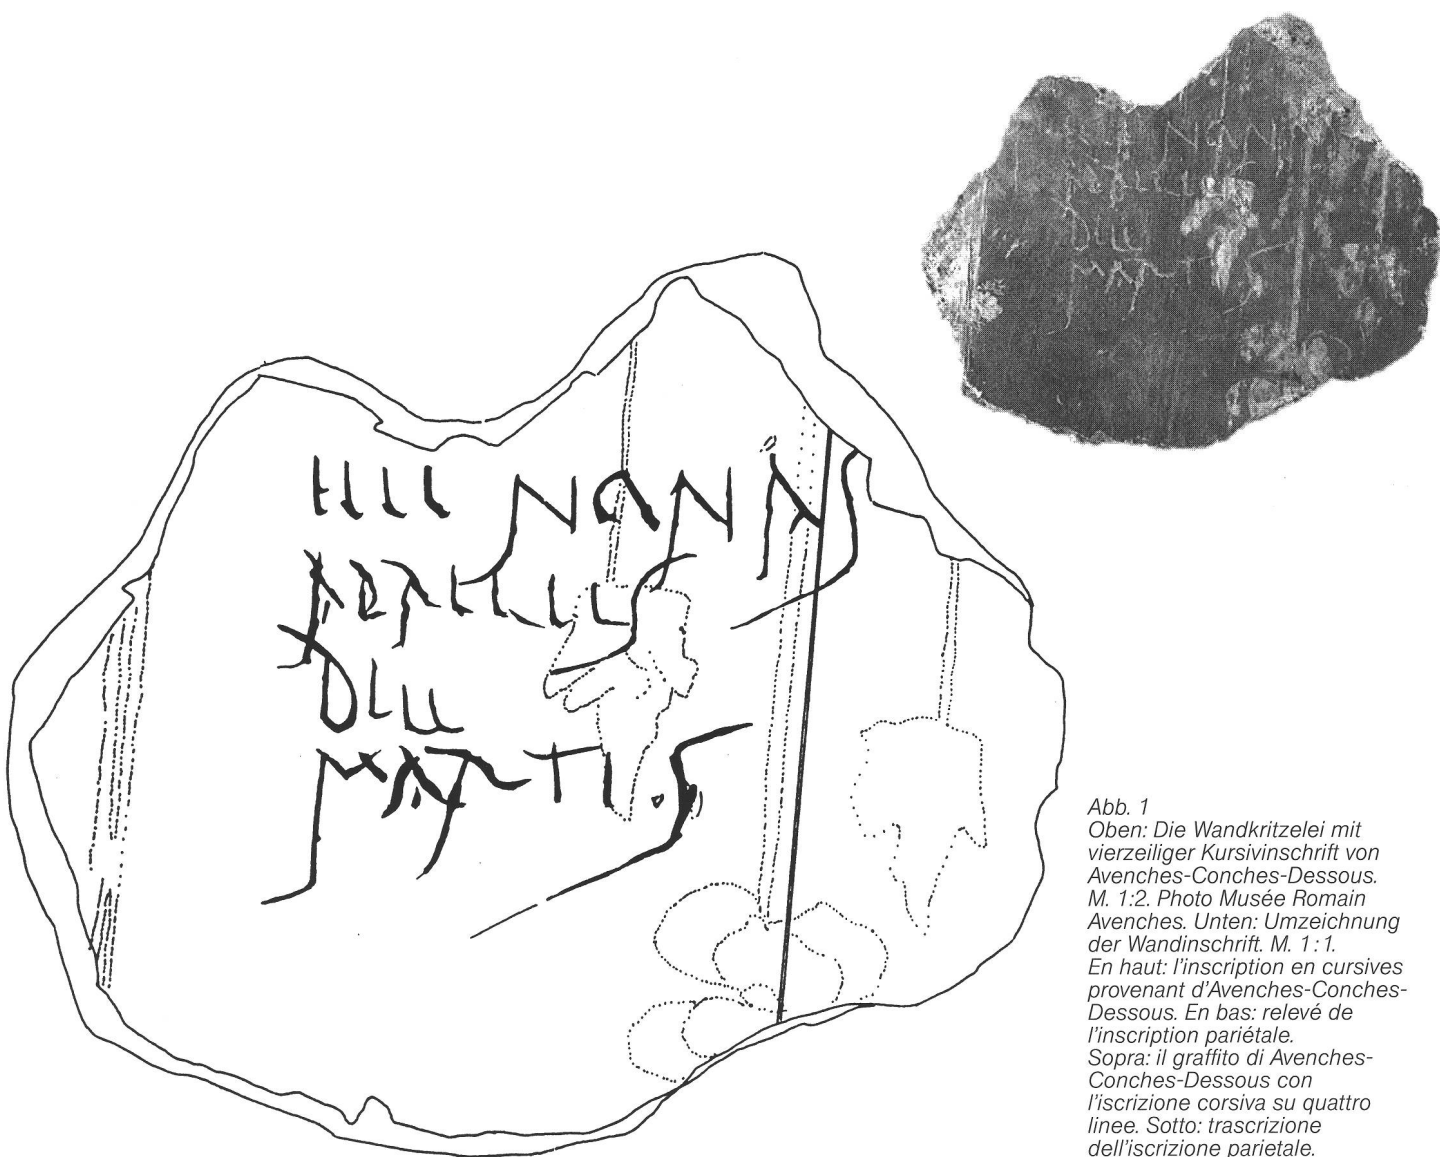 IIII NONAS
APRILIIS
DIII
MARTIS
Abb. 1
Oben: Die Wandkritzelei mit
vierzeiliger Kursivinschrift von
Avenches-Conches-Dessous.
M. 1:2. Photo Musée Romain
Avenches. Unten: Umzeichnung
der Wandinschrift. M. 1:1.
En haut: l'inscription en cursives
provenant d'Avenches-Conches-
Dessous. En bas: relevé de
l'inscription pariétale.
Sopra: il graffito di Avenches-
Conches-Dessous con
l'iscrizione corsiva su quattro
linee. Sotto: trascrizione
dell'iscrizione parietale.